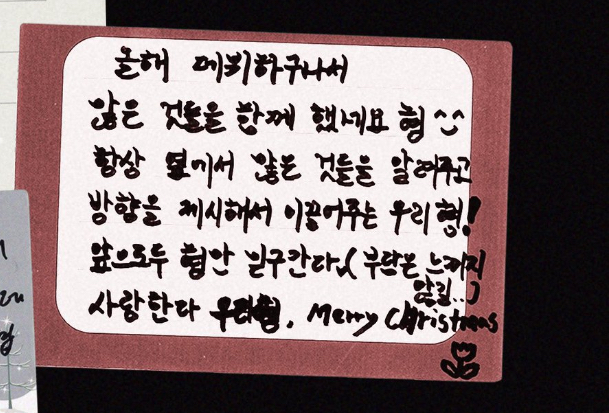 올해 메뀌하구나서
않은 것들을 함께 했네요 형 ^^
항상 옆에서 않은 것들을 알려주고
방향을 제시해서 이끌어주는 우리 형!
앞으로두 형만 믿구간다 ( 부담은 느끼지
말길..)
사랑한다 우리형. Merry Christmas